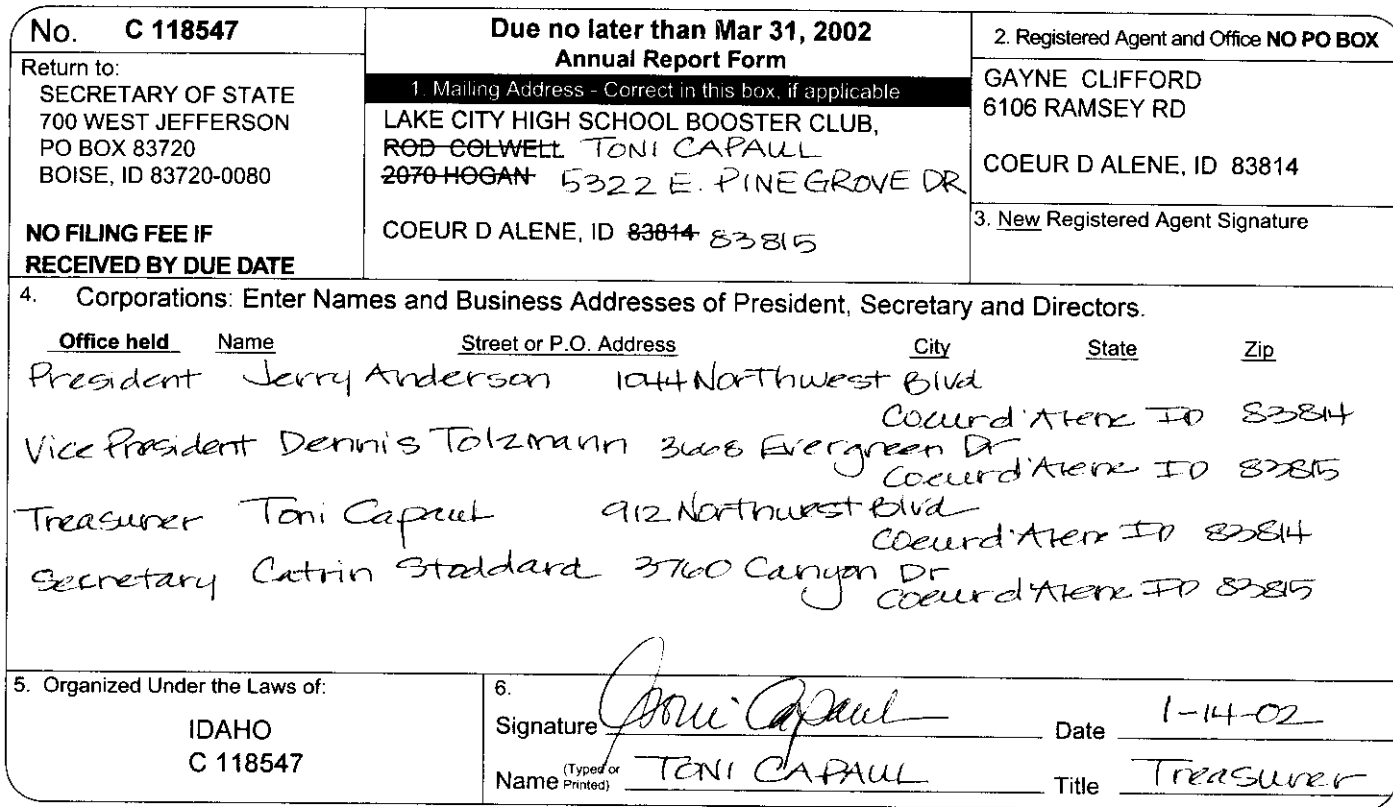 No. C 118547
Return to:
SECRETARY OF STATE
700 WEST JEFFERSON
PO BOX 83720
BOISE, ID 83720-0080
NO FILING FEE IF
RECEIVED BY DUE DATE
Due no later than Mar 31, 2002
Annual Report Form
1. Mailing Address - Correct in this box, if applicable
LAKE CITY HIGH SCHOOL BOOSTER CLUB,
ROD COLWELL TONI CAPAUL
2070 HOGAN 5322 E. PINEGROVE DR
COEUR D ALENE, ID 83814 83815
2. Registered Agent and Office NO PO BOX
GAYNE CLIFFORD
6106 RAMSEY RD
COEUR D ALENE, ID 83814
3. New Registered Agent Signature
4. Corporations: Enter Names and Business Addresses of President, Secretary and Directors.
Office held Name Street or P.O. Address City State Zip
President Jerry Anderson 1044 Northwest Blvd
Coeur d'Alene ID 83814
Vice President Dennis Tolzmann 3668 Evergreen Dr
Coeur d'Alene ID 83815
Treasurer Toni Capaul 912 Northwest Blvd
Coeur d'Alene ID 83814
Secretary Catrin Stoddard 3760 Canyon Dr
Coeur d'Alene ID 83815
5. Organized Under the Laws of:
IDAHO
C 118547
6.
Signature Toni Capaul Date 1-14-02
Name (Typed or Printed) TONI CAPAUL Title Treasurer